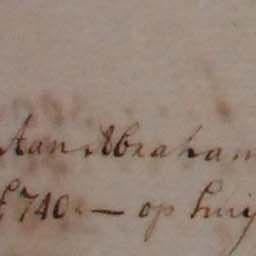 Aan Abraham
f 740.— op huij